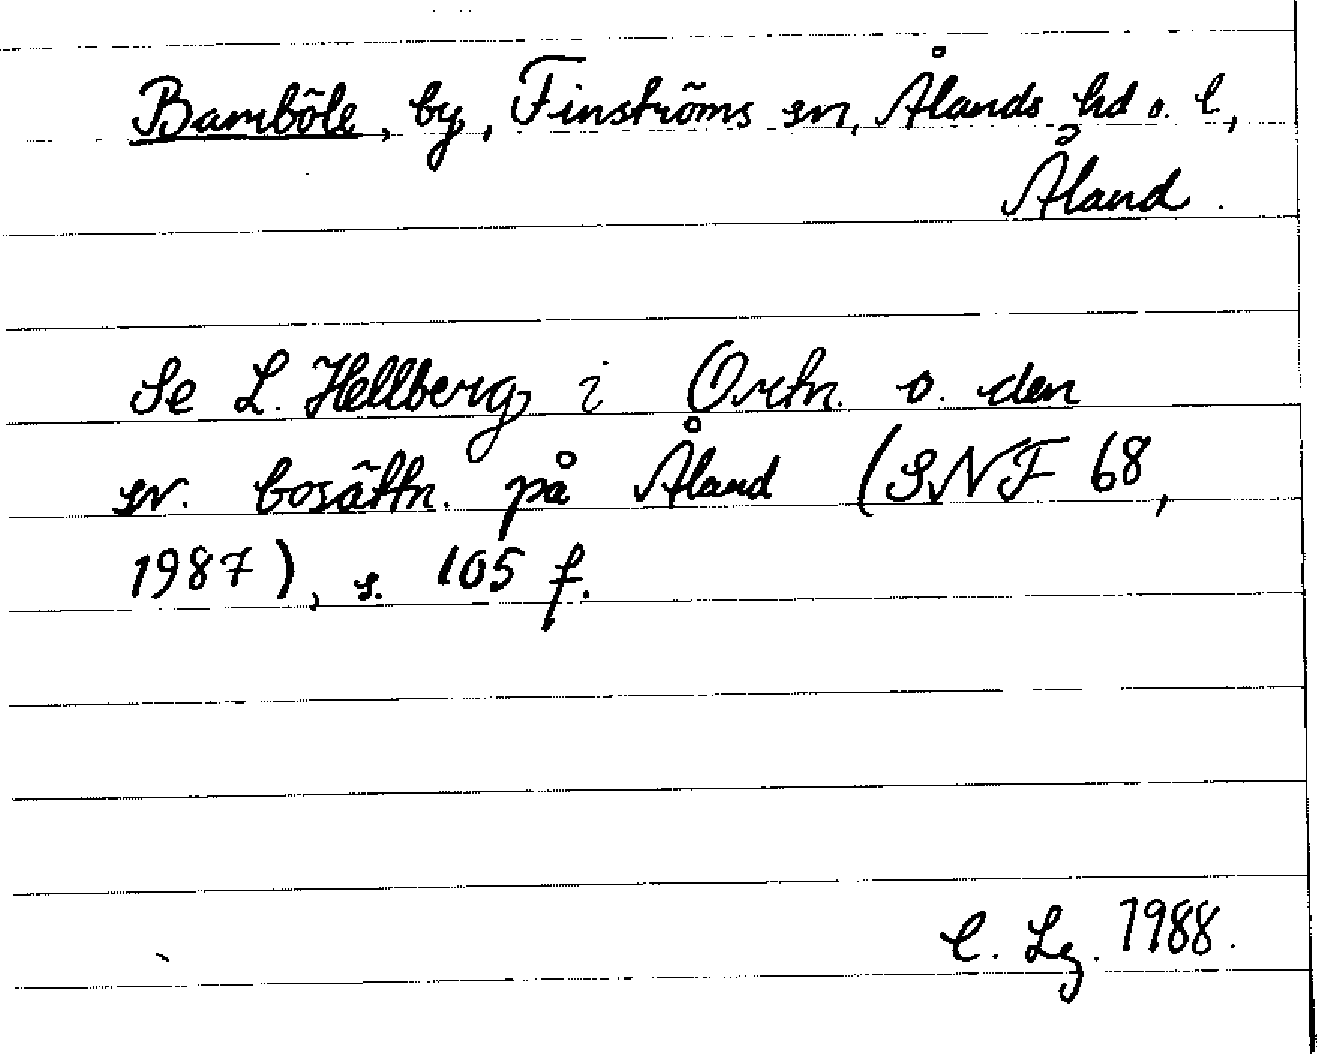 Bamböle, by, Finströms sn, Ålands hd o. l,
Åland.
Se L. Hellberg i Ortn. o. den
sv. bosättn. på Åland (SNF 68,
1987), s. 105 f.
C. Lg. 1988.